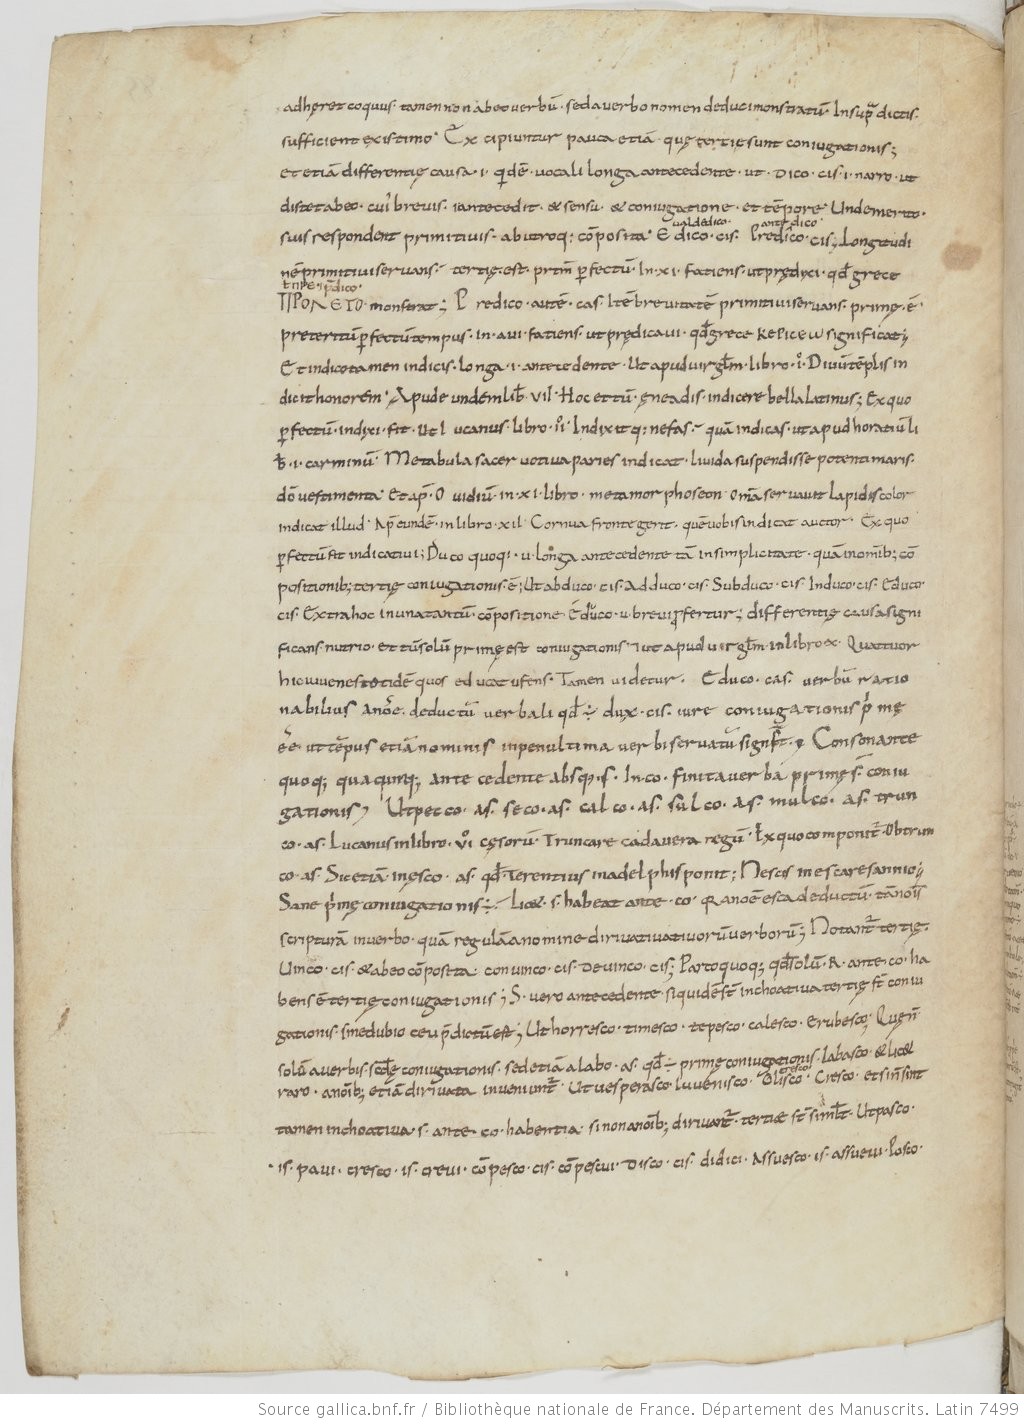 adhęret coquus· tamen non ab eo uerbū· sed a uerbo nomen deduci monstratū· In sup̄ dictis·
sufficient existimo· Excipiuntur pauca etiā· quę tertię sunt coniugationis;
et etiā differentię causa· i· uocali longa antecedente· ut· dico· cis· i· narro· ut
distet ab eo· cui breuis· i antecedit· & sensu· & coniugatione· et tēpore· Unde merito·
ualde dico· ante dico·
suis respondent primitiuis· ab utroq; cōposita· Edico· cis· Predico· cis; Longitudi
nē primitiui seruans· tertię· est· pfectū· In· xi· faciens· ut prędixi· qđ grece
monstrat; Predico· autē· cas· Itē breuitatē primitiui seruans· primę· ē·
preteritū pfectū tempus· in· aui· faciens· ut prędicaui· qđ grece significat;
Et indico tamen indicis· longa· i· antecedente· Ut apud libro· i· Diuū tēplis in
dicit honorem· Apud eundem lib· VII· Hoc et tū· ęneadis· indicere bella latinus; Ex quo
pfectū· indixi· fit· Ut Lucanus· libro· Indixitq; nefas· quā indicas· ut apud horatiū li
b· i· carminū· Me tabula sacer uotiua paries indicat· liuida suspendisse potenti maris·
dō uestimenta· Et ap· Ouidiū· in· xi· libro· metamorphoseon· seruauit lapidis color
indicat illud· Ap eundē· in libro· xii· Cornua fronte gerit· quē uobis indicat auctor· Ex quo
pfectū fit indicaui; Duco quoq· u· longa antecedente tā in simplicitate· quā in omīb; cō
positionib; tertię coniugationis· ē; Ut abduco· cis· Adduco· cis· Subduco· cis· Induco· cis· Educo·
cis· Extra hoc in una tantū· cōpositione Educo· u· breui pfertur; differentię causa signi
ficans nutrio· et tū solū primę est coniugationis ut apud in libro· x· Quattuor
hic iuuenes totidē quos educat ufens· Tamen uidetur· Educo· cas· uerbū ratio
nabilius a noīe· deductū uerbali qđ ÷ dux· cis· iure coniugationis pmę
ēē· ut tēpus etiā nominis in penultima uerbi seruatū· Consonante
quoq; quaqunq; antecedente absq· s· In· co· finita uerba primę s̄ coniu
gationis; Ut pecco· as· seco· as· calco· as· sulco· as· mulco· as· trun
co· as· Lucanus in libro· cęsorū· Truncare cadauera regū· Ex quo componit· Obtrun
co· as· Sic etiā inęsco· as· qđ· Terentius in adelphis ponit; Nescis inescare sannio;
Sane pmę coniugationis ÷· Lic& s· habeat ante· co· esca deductū· tā noīs
scripturā in uerbo· quā regulā a nomine diriuatiuorū uerborū; Notant tertię·
Uinco· cis· & ab eo cōposita· conuinco· cis· Deuinco· cis; Parco quoq; qđ solū· R· ante· co· ha
bens ē tertię coniugationis; S· uero antecedente siquidē st̄ inchoatiua tertię st̄ coniu
gationis· sine dubio ceu pdictū est; Ut horresco· timesco· tepesco· calesco· erubesco; Quę
solū a uerbis· coniugationis· sed etiā a labo· as· qđ ÷ primę coniugationis· labasco· & lic&
cresco
raro· a noīb; etiā diriuata inueniunt· Ut uesperasco· Iuuenisco· Olisco· Cresco· et si sint
tamen inchoatiua· s· ante· co· habentia· si non a noīb; diriuant· tertię st̄ simlt· Ut pasco·
is· paui· cresco· is· creui· cōpesco· cis· cōpescui· Disco· cis· didici· Assuesco· is· assueui· Posco·
Source gallica.bnf.fr / Bibliothèque nationale de France. Département des Manuscrits. Latin 7499